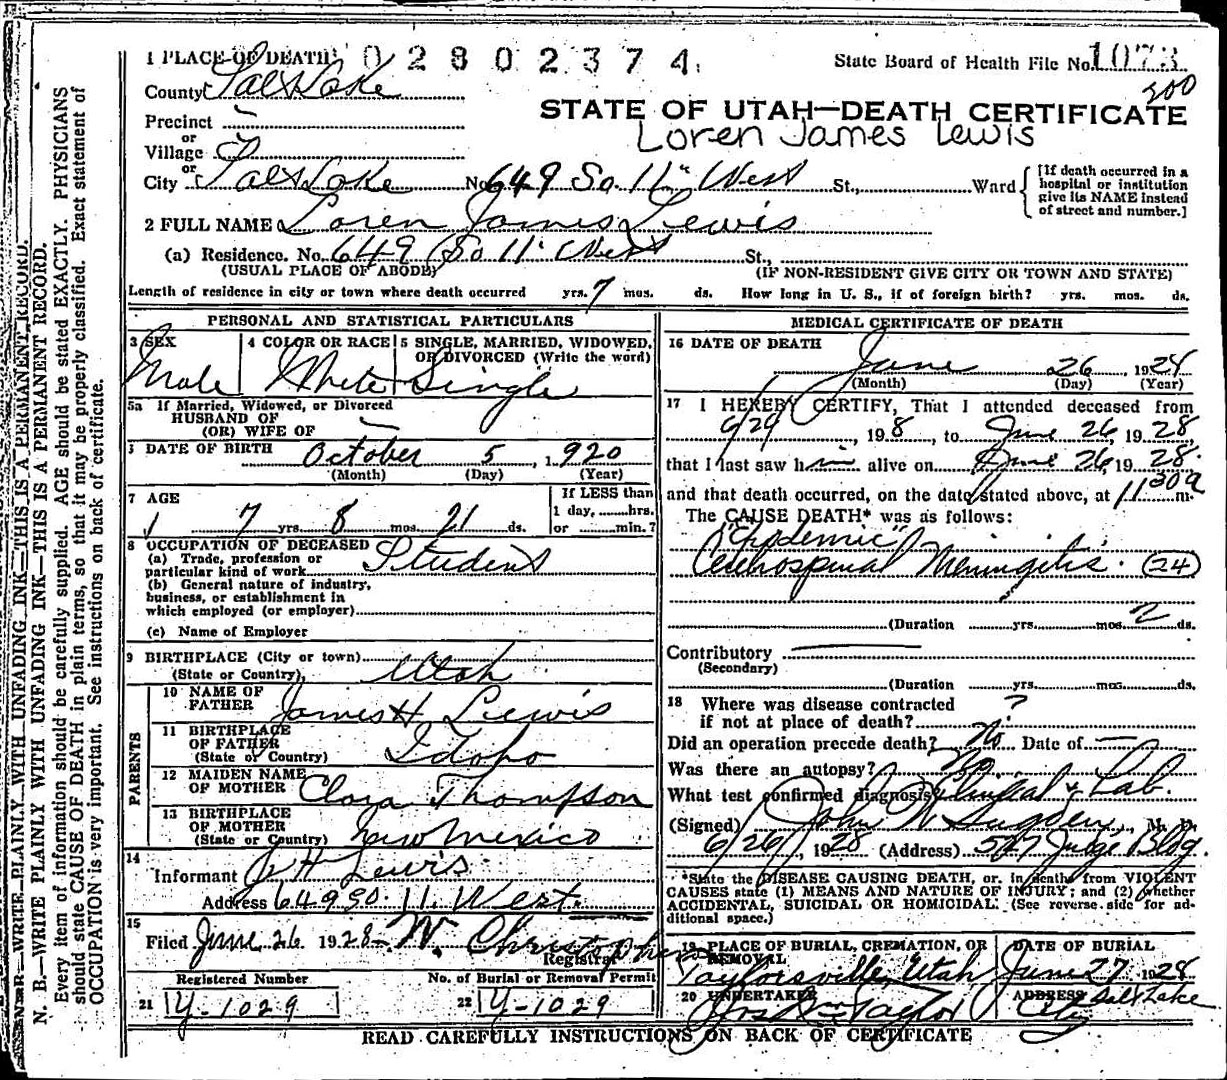 1 PLACE OF DEATH 0 2 8 0 2 3 7 4
State Board of Health File No. 1073
County Salt Lake
200
STATE OF UTAH—DEATH CERTIFICATE
Precinct
Loren James Lewis
or
Village
or
City Salt Lake No. 649 So. 11" West St., Ward
[If death occurred in a hospital or institution give its NAME instead of street and number.]
2 FULL NAME Loren James Lewis
(a) Residence. No. 649 So 11" West St.,
(USUAL PLACE OF ABODE) (IF NON-RESIDENT GIVE CITY OR TOWN AND STATE)
Length of residence in city or town where death occurred yrs. 7 mos. ds. How long in U. S., if of foreign birth? yrs. mos. ds.
PERSONAL AND STATISTICAL PARTICULARS
3 SEX
Male
4 COLOR OR RACE
White
5 SINGLE, MARRIED, WIDOWED,
OR DIVORCED (Write the word)
Single
5a If Married, Widowed, or Divorced
HUSBAND OF
(OR) WIFE OF
DATE OF BIRTH October 5, 1920
(Month) (Day) (Year)
7 AGE
7 yrs. 8 mos. 21 ds.
If LESS than
1 day, hrs.
or min.?
8 OCCUPATION OF DECEASED
(a) Trade, profession or
particular kind of work Student
(b) General nature of industry,
business, or establishment in
which employed (or employer)
(c) Name of Employer
9 BIRTHPLACE (City or town)
(State or Country) Utah
PARENTS
10 NAME OF
FATHER James H Lewis
11 BIRTHPLACE
OF FATHER
(State or Country) Idaho
12 MAIDEN NAME
OF MOTHER Clara Thompson
13 BIRTHPLACE
OF MOTHER
(State or Country) New Mexico
14
Informant J H Lewis
Address 649 So. 11. West.
15
Filed June 26 1928 W. Christophers
Registrar
Registered Number
21 Y-1029
No. of Burial or Removal Permit
22 Y-1029
MEDICAL CERTIFICATE OF DEATH
16 DATE OF DEATH
June 26, 1924
(Month) (Day) (Year)
17 I HEREBY CERTIFY, That I attended deceased from
6/24, 19 8, to June 26, 1928,
that I last saw him alive on June 26, 1928.
and that death occurred, on the date stated above, at 11 30a m.
The CAUSE DEATH* was as follows:
"Epidemic"
Cerebrospinal Meningitis. (24)
(Duration yrs. mos. 2 ds.
Contributory
(Secondary)
(Duration yrs. mos. ds.
18 Where was disease contracted
if not at place of death? ?
Did an operation precede death? No. Date of
Was there an autopsy? No.
What test confirmed diagnosis? Clinical & Lab.
(Signed) John W Sugden, M. D.
6/26, 1928 (Address) 507 Judge Bldg.
*State the DISEASE CAUSING DEATH, or, in deaths from VIOLENT
CAUSES state (1) MEANS AND NATURE OF INJURY; and (2) whether
ACCIDENTAL, SUICIDAL OR HOMICIDAL. (See reverse side for ad-
ditional space.)
19 PLACE OF BURIAL, CREMATION, OR
REMOVAL
Taylorsville, Utah
DATE OF BURIAL
June 27 1928
20 UNDERTAKER
Taylor
ADDRESS Salt Lake
City
READ CAREFULLY INSTRUCTIONS ON BACK OF CERTIFICATE
N. B.—WRITE PLAINLY WITH UNFADING INK—THIS IS A PERMANENT RECORD.
N. B.—WRITE PLAINLY WITH UNFADING INK—THIS IS A PERMANENT RECORD.
Every item of information should be carefully supplied. AGE should be stated EXACTLY. PHYSICIANS
should state CAUSE OF DEATH in plain terms, so that it may be properly classified. Exact statement of
OCCUPATION is very important. See instructions on back of certificate.